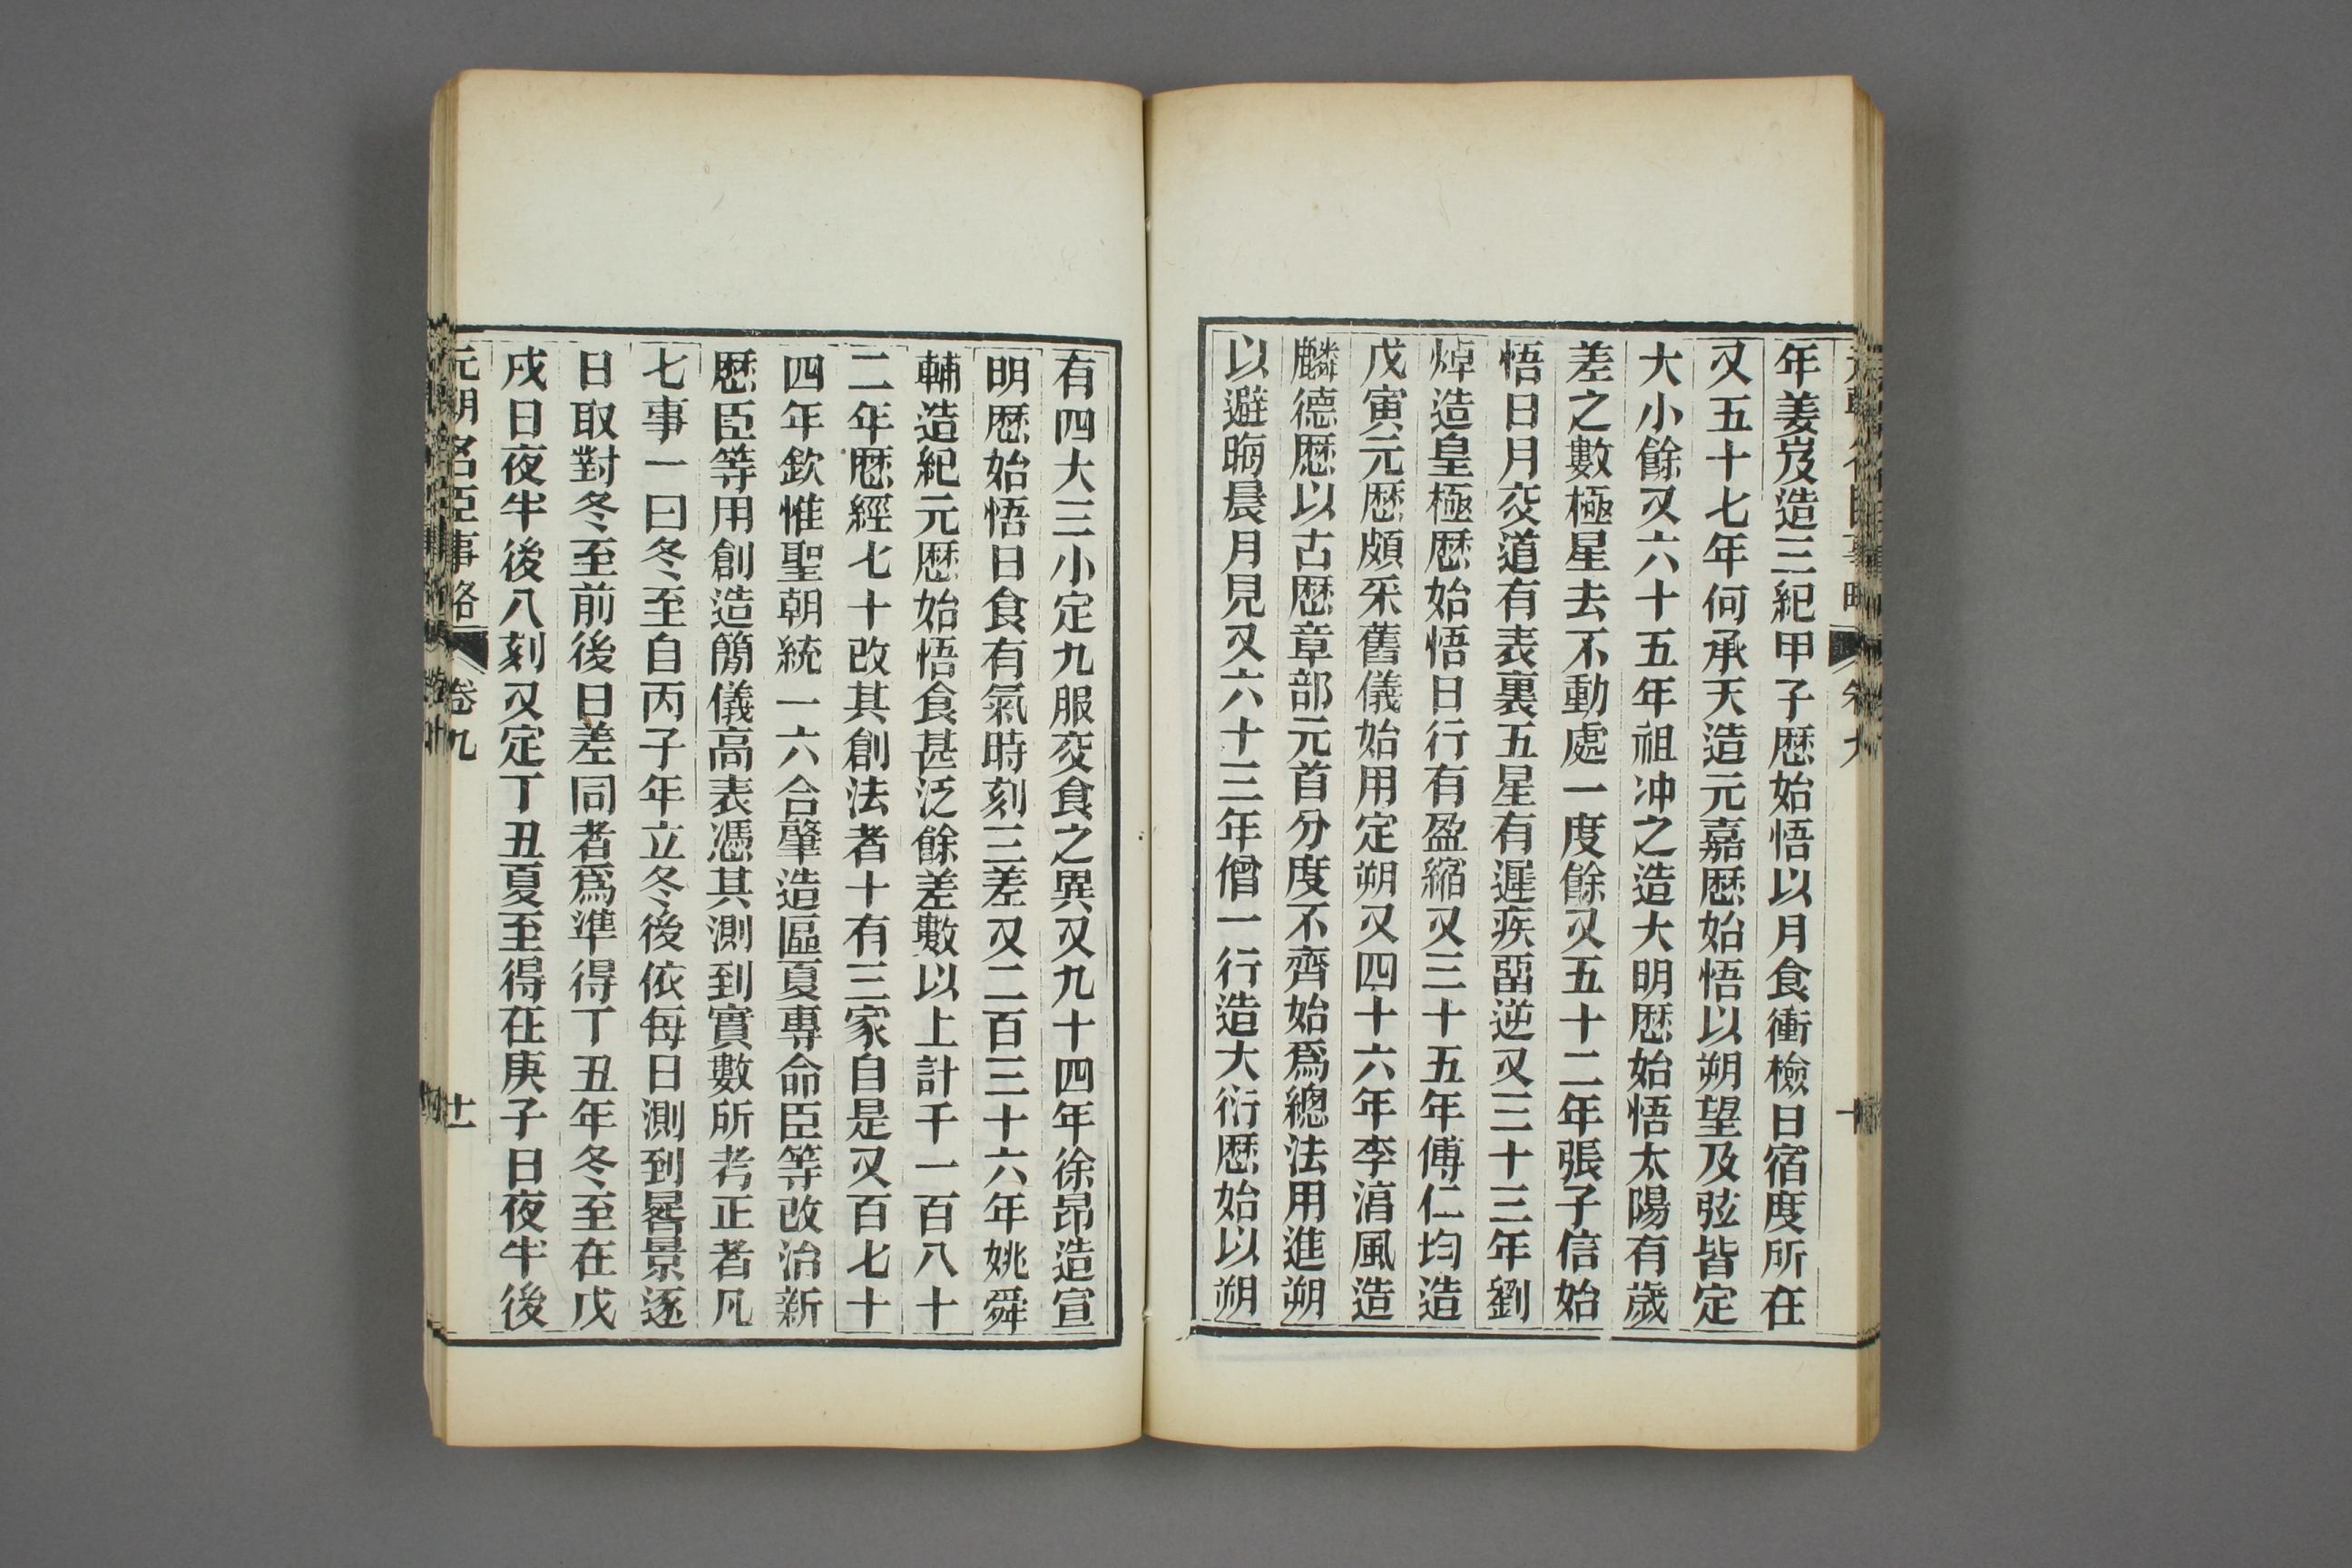 年姜岌造三紀甲子歷始悟以月食衝檢日宿度所在
又五十七年何承天造元嘉歷始悟以朔望及弦皆定
大小餘又六十五年祖冲之造大明歷始悟太陽有歲
差之數極星去不動處一度餘又五十二年張子信始
悟日月交道有表裏五星有遲疾畱逆又三十三年劉
焯造皇極歷始悟日行有盈縮又三十五年傅仁均造
戊寅元歷頗采舊儀始用定朔又四十六年李淯風造
麟德歷以古歷章部元首分度不齊始爲總法用進朔
以避晦晨月見又六十三年僧一行造大衍歷始以朔
有四大三小定九服交食之異又九十四年徐昂造宣
明歷始悟日食有氣時刻三差又二百三十六年姚舜
輔造紀元歷始悟食甚泛餘差數以上計千一百八十
二年歷經七十改其創法者十有三家自是又百七十
四年欽惟聖朝統一六合肇造區夏專命臣等改治新
歷臣等用創造簡儀高表憑其測到實數所考正者凡
七事一曰冬至自丙子年立冬後依每日測到晷景逐
日取對冬至前後日差同者爲準得丁丑年冬至在戊
戌日夜半後八刻又定丁丑夏至得在庚子日夜半後
元朝名臣事略 卷九 廿